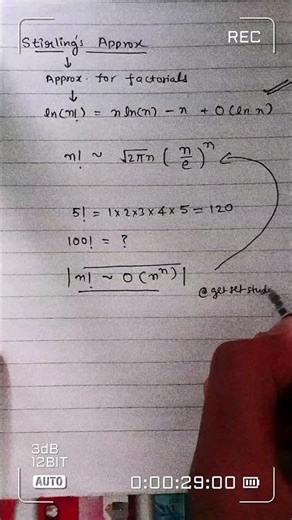 REC
Stirling's Approx
↓
Approx. for factorials
↓
ln(n!) = n ln(n) - n + O(ln n)
n! ~ √2πn (n/e)^n
5! = 1×2×3×4×5 = 120
100! = ?
|n! ~ O(n^n)|
@get set stud
3dB
12BIT
AUTO
0:00:29:00